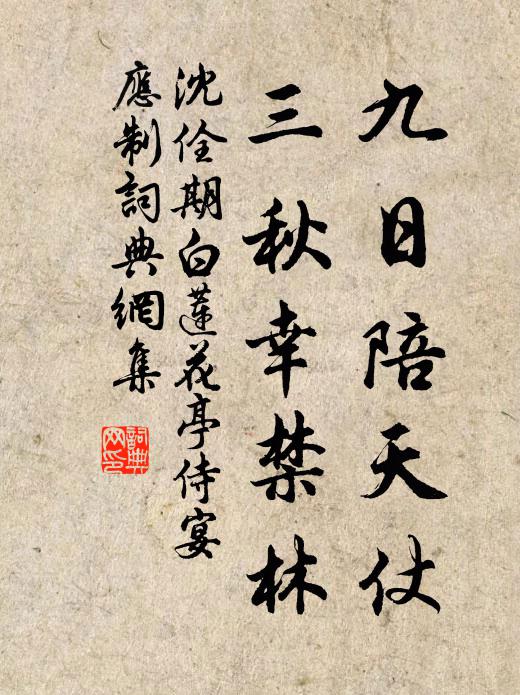 九日陪天仗
三秋幸禁林
沈佺期白蓮花亭侍宴
應制詞典網集
詞典
网印